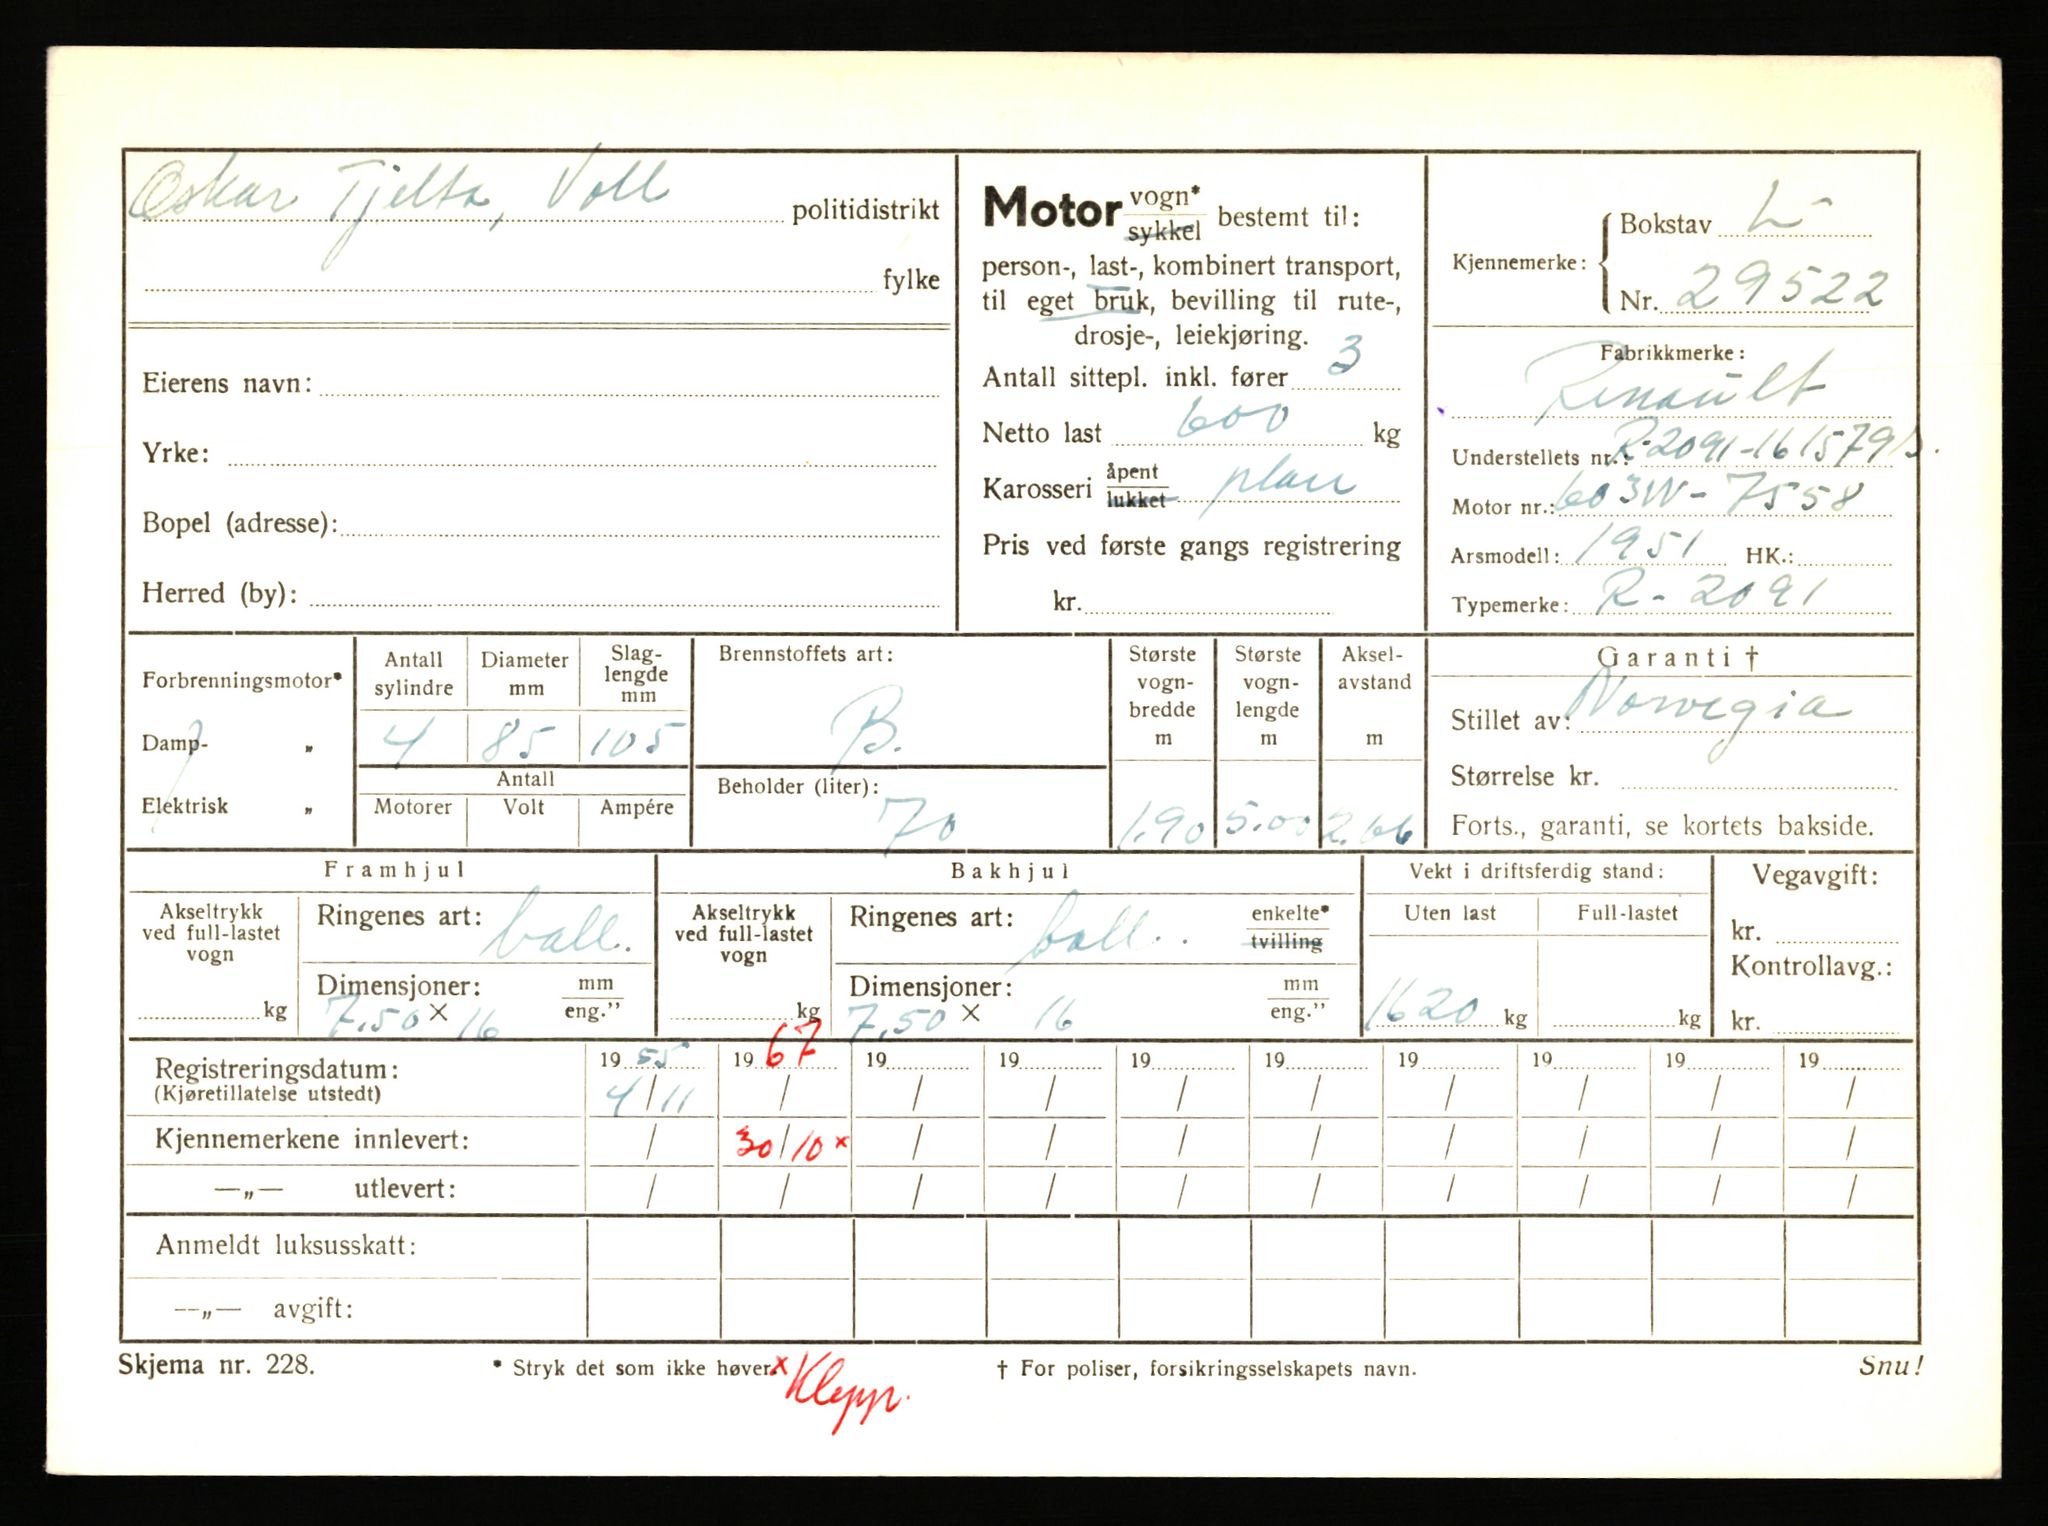 Oskar Tjelta, Voll politidistrikt
fylke
Eierens navn:
Yrke:
Bopel (adresse):
Herred (by):
Motor vogn* sykkel bestemt til:
person-, last-, kombinert transport,
til eget bruk, bevilling til rute-,
drosje-, leiekjøring.
Antall sittepl. inkl. fører 3
Netto last 600 kg
Karosseri åpent lukket plan
Pris ved første gangs registrering
kr.
Kjennemerke: Bokstav L-
Nr. 29522
Fabrikkmerke:
Renault
Understellets nr.: R-2091-1615791
Motor nr.: 603W-7558
Arsmodell: 1951 HK.:
Typemerke: R-2091
Forbrenningsmotor*
Damp- „
Elektrisk „
Antall sylindre Diameter mm Slag-lengde mm
4 85 105
Antall
Motorer Volt Ampére
Brennstoffets art:
B.
Beholder (liter):
70
Største vogn-bredde m
1.90
Største vogn-lengde m
5.00
Aksel-avstand m
2.66
Garanti †
Stillet av: Norwegia
Størrelse kr.
Forts., garanti, se kortets bakside.
Framhjul
Akseltrykk ved full-lastet vogn
kg
Ringenes art: ball.
Dimensjoner: mm eng."
7.50 × 16
Bakhjul
Akseltrykk ved full-lastet vogn
kg
Ringenes art: ball. enkelte* tvilling
Dimensjoner: mm eng."
7.50 × 16
Vekt i driftsferdig stand:
Uten last Full-lastet
1620 kg kg
Vegavgift:
kr.
Kontrollavg.:
kr.
Registreringsdatum: 19 55 19 67 19 19 19 19 19 19 19 19
(Kjøretillatelse utstedt) 4/11 / / / / / / / / /
Kjennemerkene innlevert: / 30/10 × / / / / / / / /
—„— utlevert: / / / / / / / / / /
Anmeldt luksusskatt:
—„— avgift:
Skjema nr. 228. * Stryk det som ikke høver. × Klepp. † For poliser, forsikringsselskapets navn. Snu!